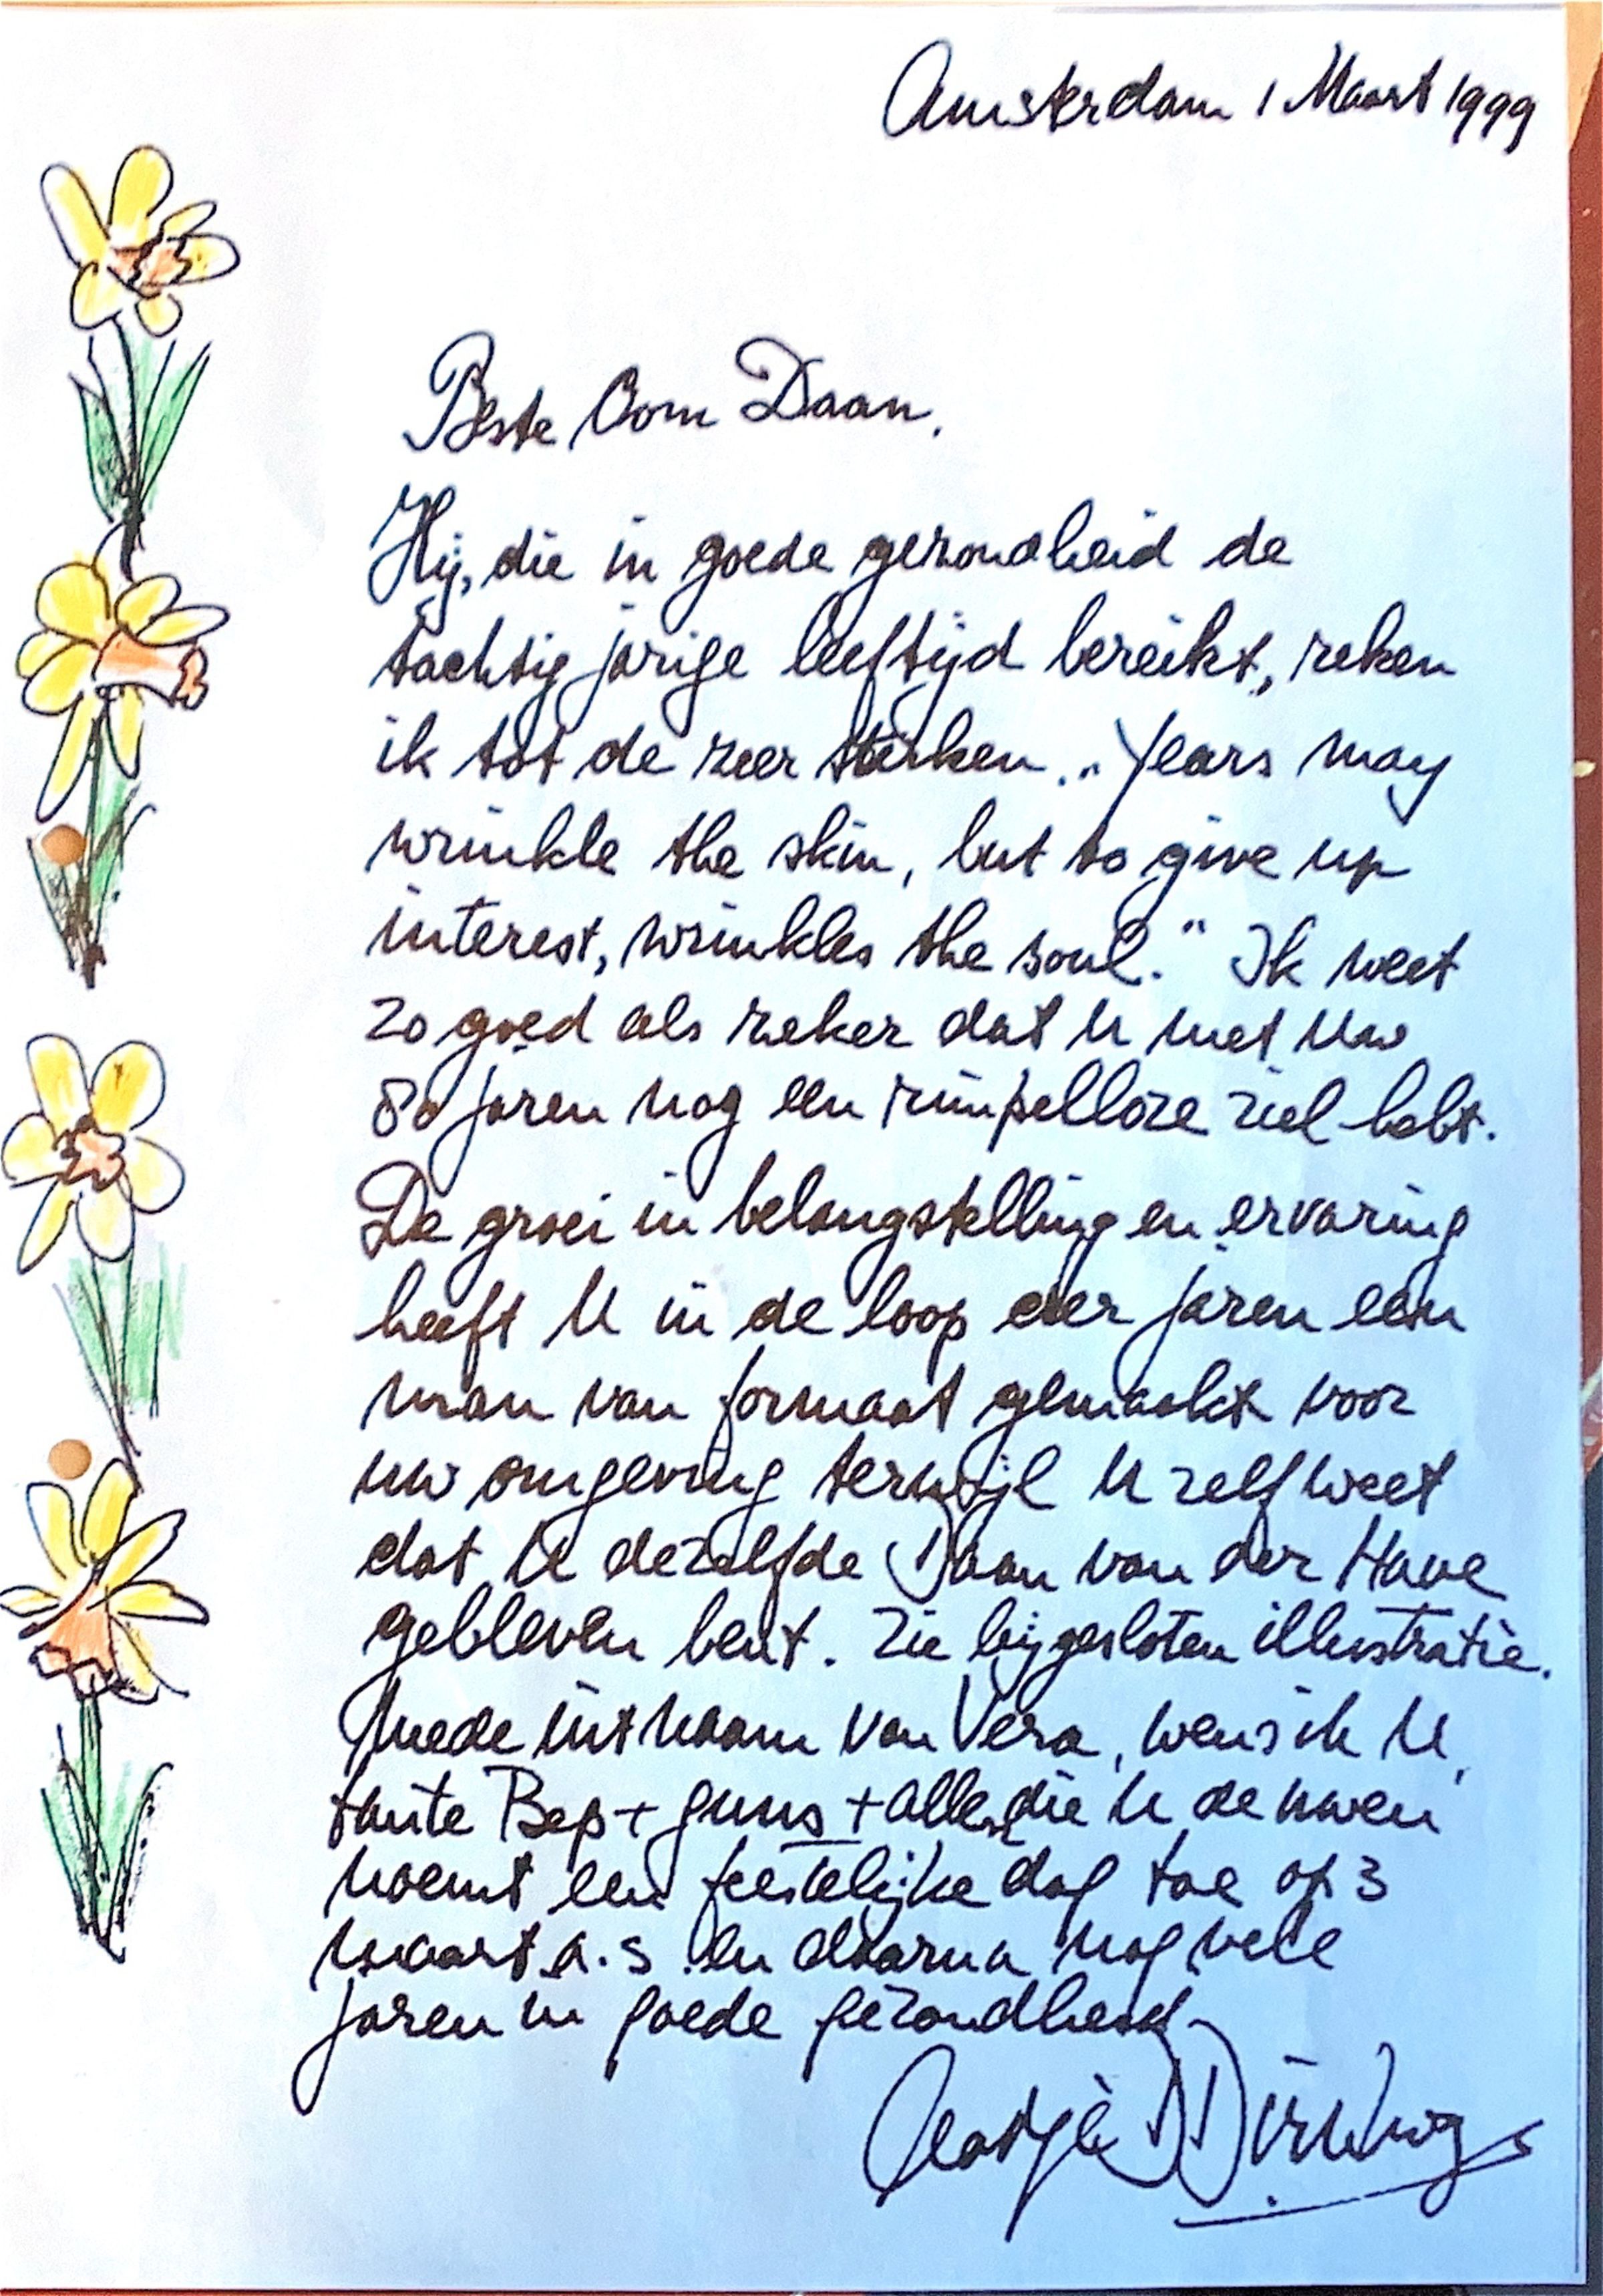 Amsterdam 1 Maart 1999
Beste Oom Daan,
Hij, die in goede gezondheid de
tachtig jarige leeftijd bereikt, reken
ik tot de zeer sterken. „Years may
wrinkle the skin, but to give up
interest, wrinkles the soul." Ik weet
zo goed als zeker dat U met Uw
80 jaren nog een rimpelloze ziel hebt.
De groei in belangstelling en ervaring
heeft U in de loop der jaren een
man van formaat gemaakt voor
uw omgeving terwijl U zelf weet
dat U dezelfde Daan van der Have
gebleven bent. Zie bijgesloten illustratie.
Mede uit naam van Vera, wens ik U,
tante Bep + Guus + allen die U de uwen
noemt een feestelijke dag toe op 3
maart a.s. en daarna nog vele
jaren in goede gezondheid.